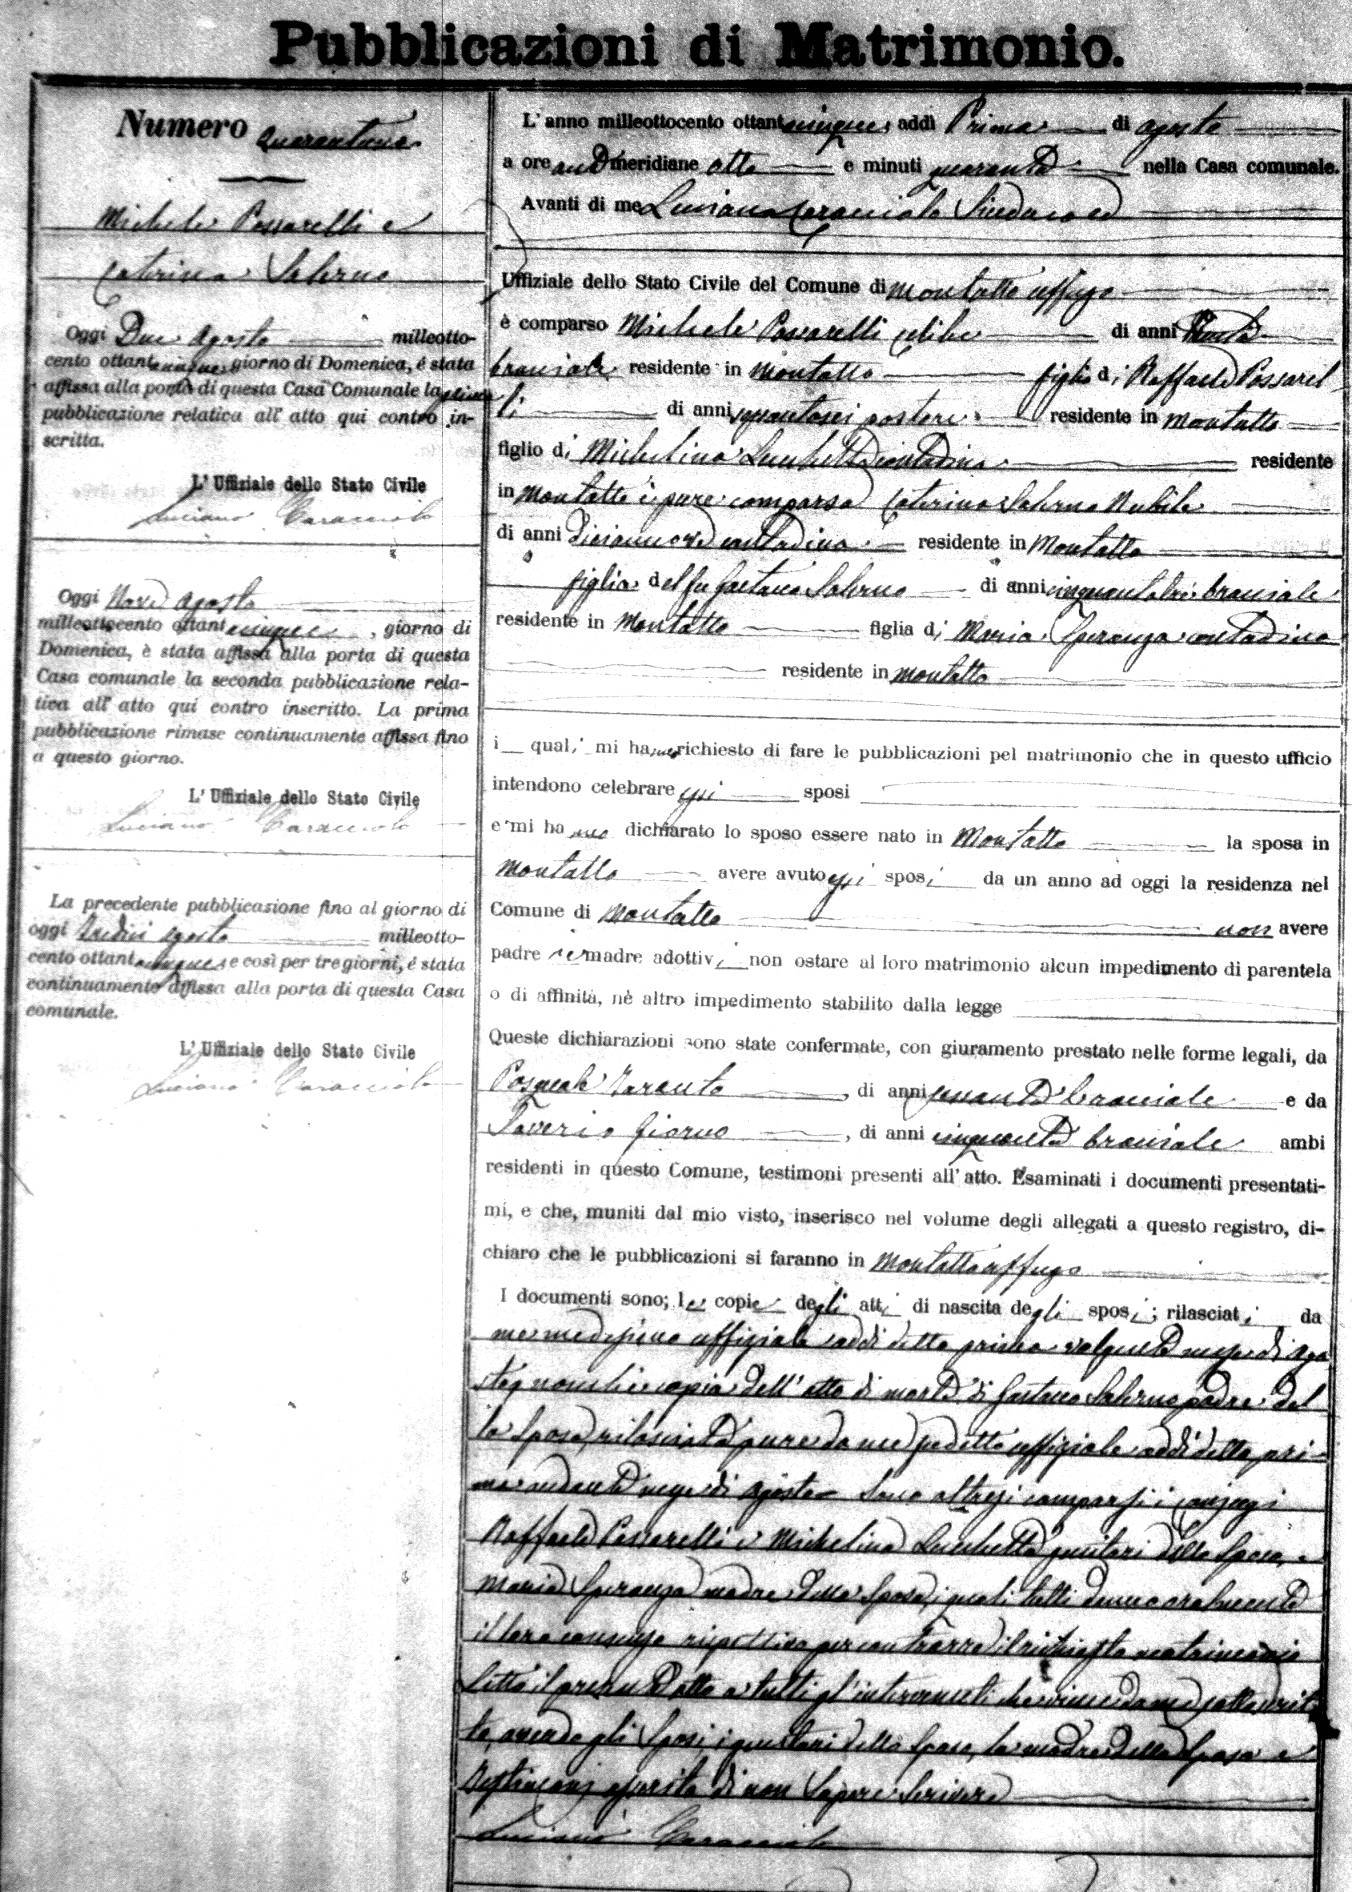 Pubblicazioni di Matrimonio.
Numero Quarantuno
Michele Passarelli e
Caterina Salerno
Oggi Due Agosto milleotto-
cento ottantacinque giorno di Domenica, é stata
affissa alla porta di questa Casa Comunale la prima
pubblicazione relativa all' atto qui contro in-
scritta.
L' Uffiziale dello Stato Civile
Luciano Caracciolo
Oggi Nove Agosto
milleottocento ottantacinque, giorno di
Domenica, è stata affissa alla porta di questa
Casa comunale la seconda pubblicazione rela-
tiva all' atto qui contro inscritto. La prima
pubblicazione rimase continuamente affissa fino
a questo giorno.
L' Uffiziale dello Stato Civile
Luciano Caracciolo
La precedente pubblicazione fino al giorno di
oggi Dodici Agosto milleotto-
cento ottantacinque e così per tre giorni, é stata
continuamente affissa alla porta di questa Casa
comunale.
L' Uffiziale dello Stato Civile
Luciano Caracciolo
L' anno milleottocento ottantacinque, addì Primo di agosto
a ore antimeridiane otto e minuti quaranta nella Casa comunale.
Avanti di me Luciano Caracciolo Sindaco ed
Uffiziale dello Stato Civile del Comune di Montalto Uffugo
è comparso Michele Passarelli celibe di anni
bracciale residente in Montalto figlio di Raffaele Passarel
li di anni pastore residente in Montalto
figlio di Michelina Lucchetta contadina residente
in Montalto è pure comparsa Caterina Salerno Nubile
di anni diciannove contadina residente in Montalto
figlia del fu Gaetano Salerno di anni cinquantatrè bracciale
residente in Montalto figlia di Maria Speranza contadina
residente in Montalto
i quali mi hanno richiesto di fare le pubblicazioni pel matrimonio che in questo ufficio
intendono celebrare essi sposi
e mi hanno dichiarato lo sposo essere nato in Montalto la sposa in
Montalto avere avuto essi sposi da un anno ad oggi la residenza nel
Comune di Montalto non avere
padre nè madre adottivi non ostare al loro matrimonio alcun impedimento di parentela
o di affinità, nè altro impedimento stabilito dalla legge
Queste dichiarazioni sono state confermate, con giuramento prestato nelle forme legali, da
Pasquale Taranto, di anni bracciale e da
Saverio Giorno, di anni cinquanta bracciale ambi
residenti in questo Comune, testimoni presenti all' atto. Esaminati i documenti presentati-
mi, e che, muniti dal mio visto, inserisco nel volume degli allegati a questo registro, di-
chiaro che le pubblicazioni si faranno in Montalto Uffugo
I documenti sono; le copie degli atti di nascita degli sposi; rilasciati da
me medesimo uffiziale addì detto primo volgente mese di Ago
sto, nonchè copia dell' atto di morte di Gaetano Salerno padre del
la Sposa, rilasciata pure da me predetto uffiziale addì detto pri-
mo andante mese di Agosto. Sono altresì comparsi i coniugi
Raffaele Passarelli e Michelina Lucchetta genitori dello Sposo, e
Maria Speranza madre della Sposa, i quali tutti danno oralmente
il loro consenso rispettivo per contrarre il richiesto matrimonio
Letto il presente atto a tutti gl'intervenuti che viene da me sottoscrit
to, avendo gli Sposi, i genitori dello Sposo, la madre della Sposa e
testimoni asserito di non sapere scrivere
Luciano Caracciolo